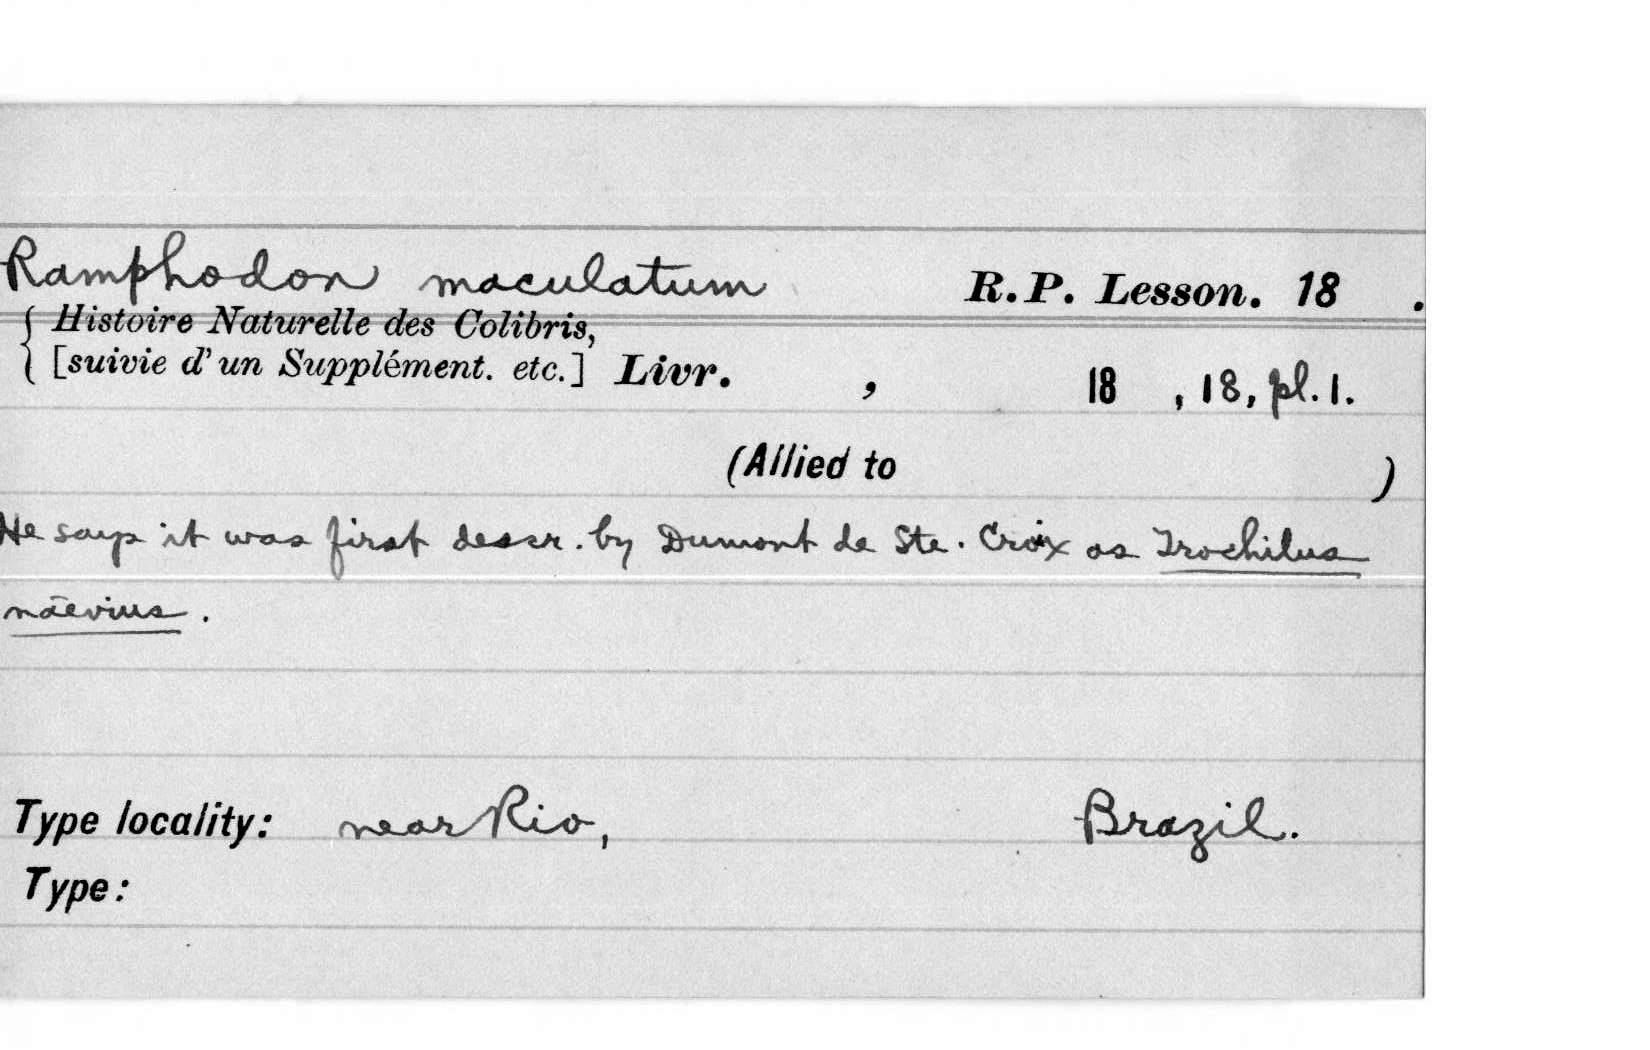 Ramphodon maculatum R.P. Lesson. 18 .
{ Histoire Naturelle des Colibris,
[suivie d'un Supplément. etc.] Livr. , 18 , 18, pl. 1.
(Allied to )
He says it was first descr. by Dumont de Ste. Croix as Trochilus
naevius.
Type locality: near Rio, Brazil.
Type: